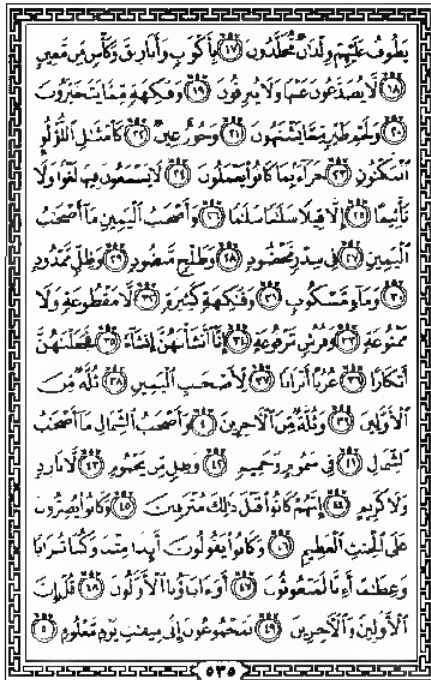 يَطُوفُ عَلَيْهِمْ وِلْدَٰنٌ مُّخَلَّدُونَ ١٧ بِأَكْوَابٍ وَأَبَارِيقَ وَكَأْسٍ مِّن مَّعِينٍ
١٨ لَّا يُصَدَّعُونَ عَنْهَا وَلَا يُنزِفُونَ ١٩ وَفَٰكِهَةٍ مِّمَّا يَتَخَيَّرُونَ
٢٠ وَلَحْمِ طَيْرٍ مِّمَّا يَشْتَهُونَ ٢١ وَحُورٌ عِينٌ ٢٢ كَأَمْثَٰلِ ٱللُّؤْلُؤِ
ٱلْمَكْنُونِ ٢٣ جَزَآءً بِمَا كَانُوا۟ يَعْمَلُونَ ٢٤ لَا يَسْمَعُونَ فِيهَا لَغْوًا وَلَا
تَأْثِيمًا ٢٥ إِلَّا قِيلًا سَلَٰمًا سَلَٰمًا ٢٦ وَأَصْحَٰبُ ٱلْيَمِينِ مَآ أَصْحَٰبُ
ٱلْيَمِينِ ٢٧ فِى سِدْرٍ مَّخْضُودٍ ٢٨ وَطَلْحٍ مَّنضُودٍ ٢٩ وَظِلٍّ مَّمْدُودٍ
٣٠ وَمَآءٍ مَّسْكُوبٍ ٣١ وَفَٰكِهَةٍ كَثِيرَةٍ ٣٢ لَّا مَقْطُوعَةٍ وَلَا
مَمْنُوعَةٍ ٣٣ وَفُرُشٍ مَّرْفُوعَةٍ ٣٤ إِنَّآ أَنشَأْنَٰهُنَّ إِنشَآءً ٣٥ فَجَعَلْنَٰهُنَّ
أَبْكَارًا ٣٦ عُرُبًا أَتْرَابًا ٣٧ لِّأَصْحَٰبِ ٱلْيَمِينِ ٣٨ ثُلَّةٌ مِّنَ
ٱلْأَوَّلِينَ ٣٩ وَثُلَّةٌ مِّنَ ٱلْءَاخِرِينَ ٤٠ وَأَصْحَٰبُ ٱلشِّمَالِ مَآ أَصْحَٰبُ
ٱلشِّمَالِ ٤١ فِى سَمُومٍ وَحَمِيمٍ ٤٢ وَظِلٍّ مِّن يَحْمُومٍ ٤٣ لَّا بَارِدٍ
وَلَا كَرِيمٍ ٤٤ إِنَّهُمْ كَانُوا۟ قَبْلَ ذَٰلِكَ مُتْرَفِينَ ٤٥ وَكَانُوا۟ يُصِرُّونَ
عَلَى ٱلْحِنثِ ٱلْعَظِيمِ ٤٦ وَكَانُوا۟ يَقُولُونَ أَئِذَا مِتْنَا وَكُنَّا تُرَابًا
وَعِظَٰمًا أَءِنَّا لَمَبْعُوثُونَ ٤٧ أَوَءَابَآؤُنَا ٱلْأَوَّلُونَ ٤٨ قُلْ إِنَّ
ٱلْأَوَّلِينَ وَٱلْءَاخِرِينَ ٤٩ لَمَجْمُوعُونَ إِلَىٰ مِيقَٰتِ يَوْمٍ مَّعْلُومٍ ٥٠
٥٣٥